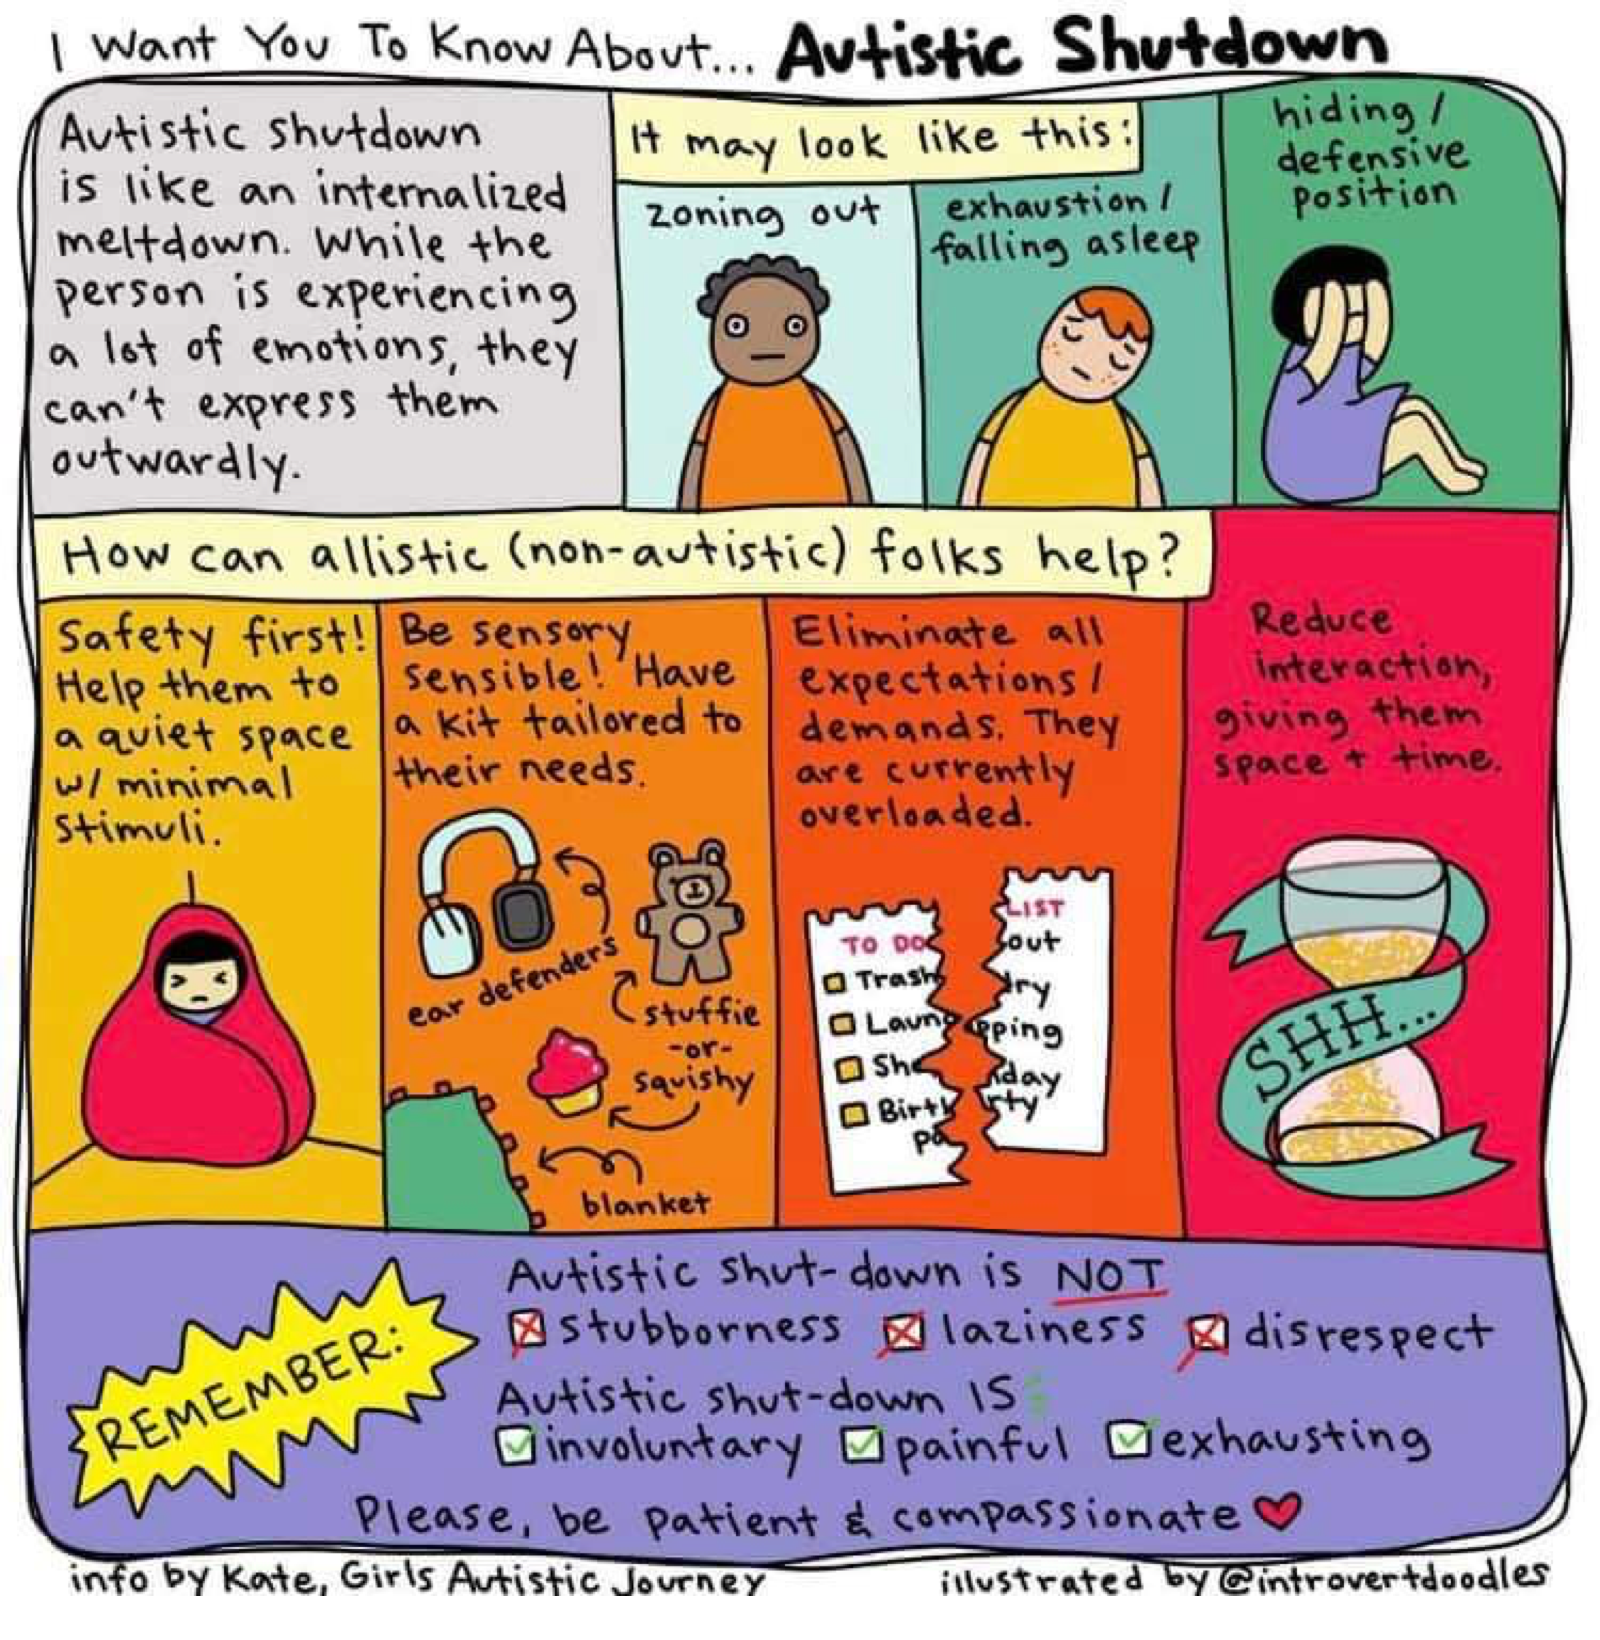 I Want You To Know About... Autistic Shutdown
Autistic shutdown
is like an internalized
meltdown. While the
person is experiencing
a lot of emotions, they
can't express them
outwardly.
It may look like this:
zoning out
exhaustion/
falling asleep
hiding/
defensive
position
How can allistic (non-autistic) folks help?
Safety first!
Help them to
a quiet space
w/ minimal
stimuli.
Be sensory
sensible! Have
a kit tailored to
their needs.
ear defenders
stuffie
-or-
squishy
blanket
Eliminate all
expectations/
demands. They
are currently
overloaded.
TO DO
Trash
Laun
Sho
Birth
pa
LIST
out
dry
pping
day
rty
Reduce
interaction,
giving them
space + time.
SHH...
REMEMBER:
Autistic shut-down is NOT
stubborness laziness disrespect
Autistic shut-down IS:
involuntary painful exhausting
Please, be patient & compassionate
info by Kate, Girls Autistic Journey
illustrated by @introvertdoodles